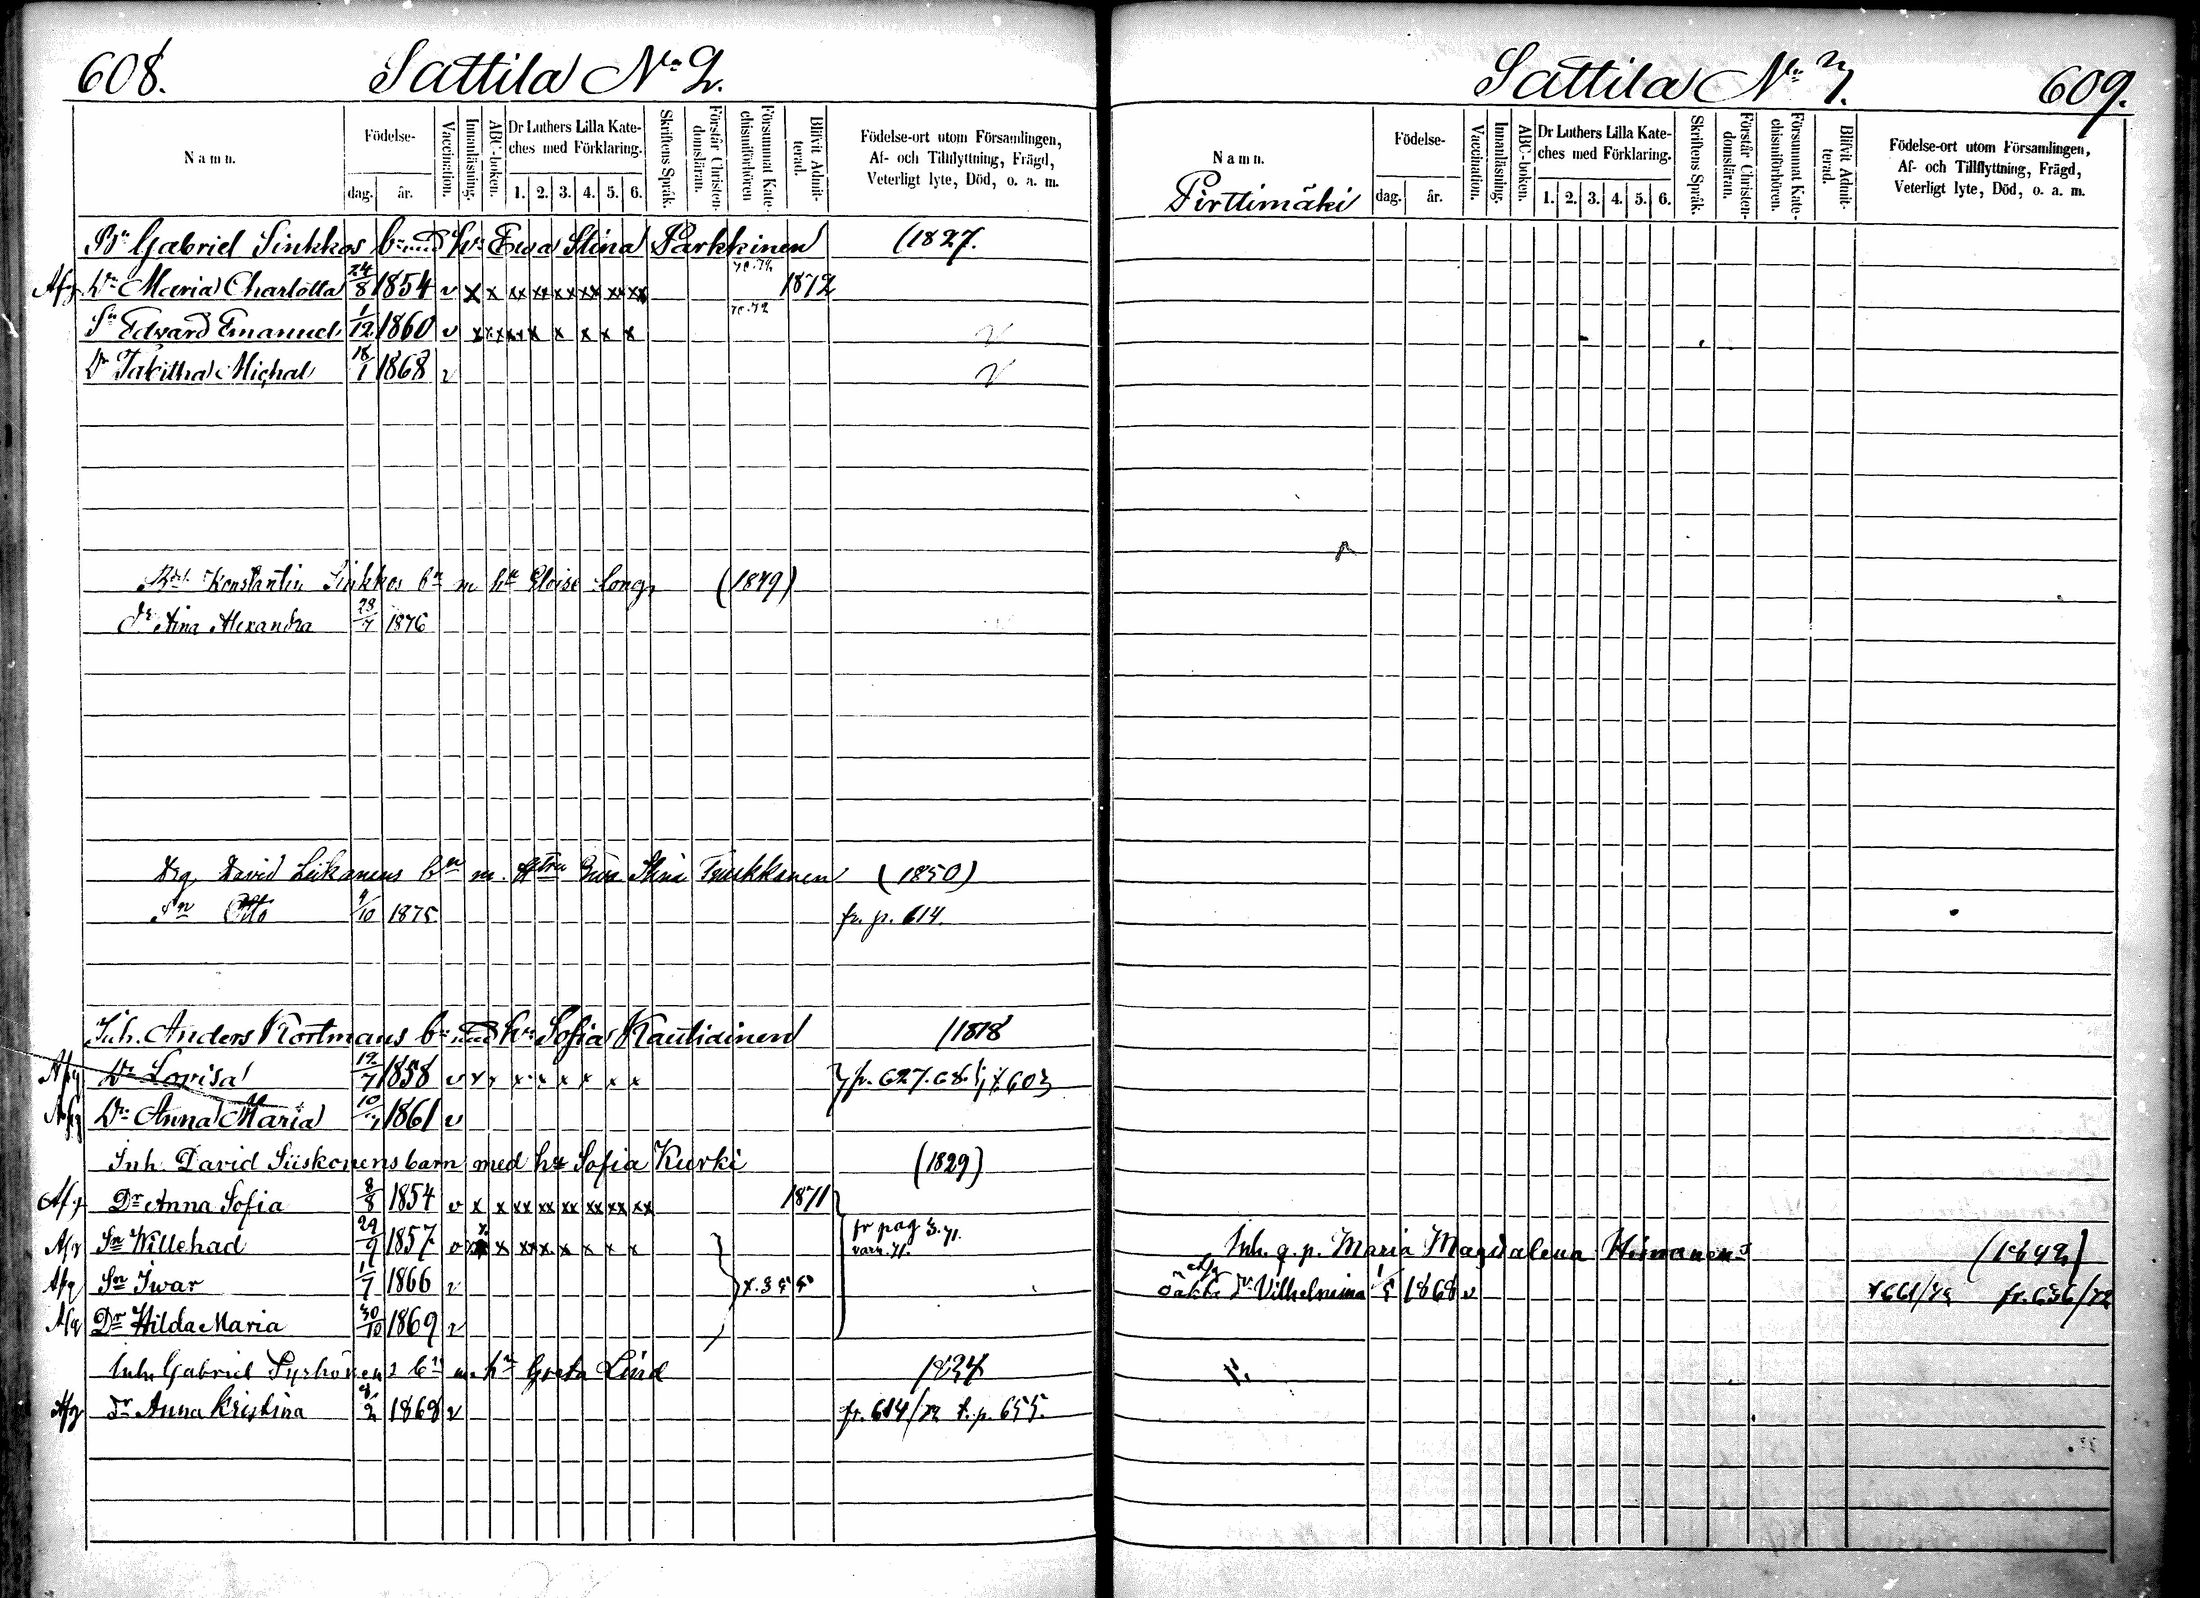 608.
Sattila No 2.
Namn.
Födelse-
dag.
år.
Vaccination.
Innanläsning.
ABC-boken.
Dr Luthers Lilla Kate-
ches med Förklaring.
1. 2. 3. 4. 5. 6.
Skriftens Språk.
Förstår Christen-
domsläran.
Försummat Kate-
chismiförhören
Blifvit Admit-
terad.
Födelse-ort utom Församlingen,
Af- och Tillflyttning, Frägd,
Veterligt lyte, Död, o. a. m.
Bn Gabriel Sinkkos bn med hu Ewa Stina Parkkinen (1827.
Afg Dr Maria Charlotta 24/8 1854 v x x xx xx xx xx xx xx 1872
Sn Edvard Emanuel 1/12 1860 v
Dr Tabitha Michal 18/1 1868 v
Konstantin Sinkkos bn m hu Eloise Long (1849)
dr Aina Alexandra 28/7 1876
Drg David Leikanens bn m. Ewa Stina (1850)
Sn Otto 9/10 1875 fr. p. 614.
Inh. Anders Kortmans bn med hu Sofia Kautiainen (1818
Afg Dr Lovisa 12/7 1858 v
Afg Dr Anna Maria 1861 v
Inh. David Siiskonens barn med hu Sofia Kurki (1829)
Afg Dr Anna Sofia 8/8 1854 v x x xx xx xx xx xx xx 1871
Afg Sn Willehad 29/9 1857 v
Afg Sn Iwar 11/7 1866 v
Afg Dr Hilda Maria 30/10 1869 v
Inh. Gabriel bn m. hu Greta Lind 1834
Afg Dr Anna Kristina 1868 v fr. 614/72 t. p. 655.
Sattila No 7.
609.
Namn.
Pirttimäki
Födelse-
dag.
år.
Vaccination.
Innanläsning.
ABC-boken.
Dr Luthers Lilla Kate-
ches med Förklaring.
1. 2. 3. 4. 5. 6.
Skriftens Språk.
Förstår Christen-
domsläran.
Försummat Kate-
chismiförhören.
Blifvit Admit-
terad.
Födelse-ort utom Församlingen,
Af- och Tillflyttning, Frägd,
Veterligt lyte, Död, o. a. m.
Inh. q. p. Maria Magdalena (1842)
oäkta Dr Vilhelmina 1868 v fr. 636/72